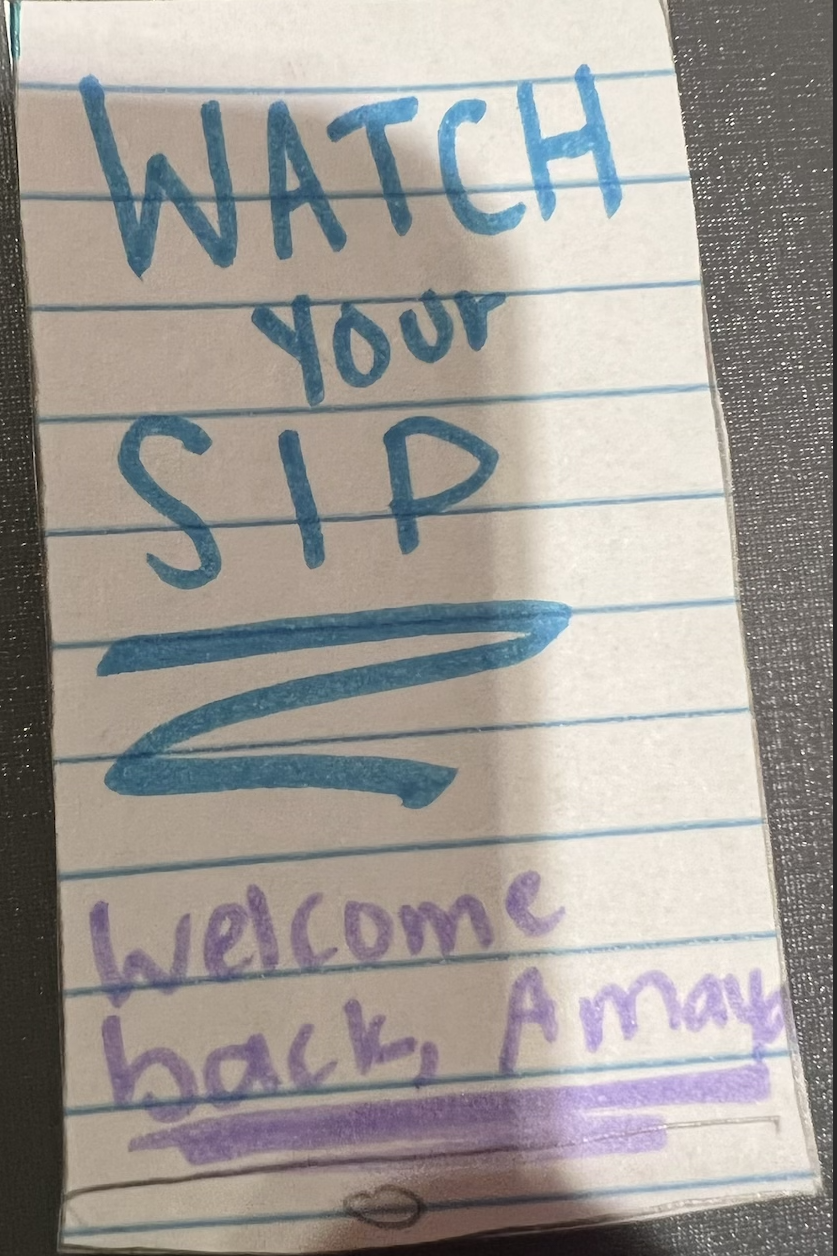 WATCH
your
SIP
Welcome
back, Amaya